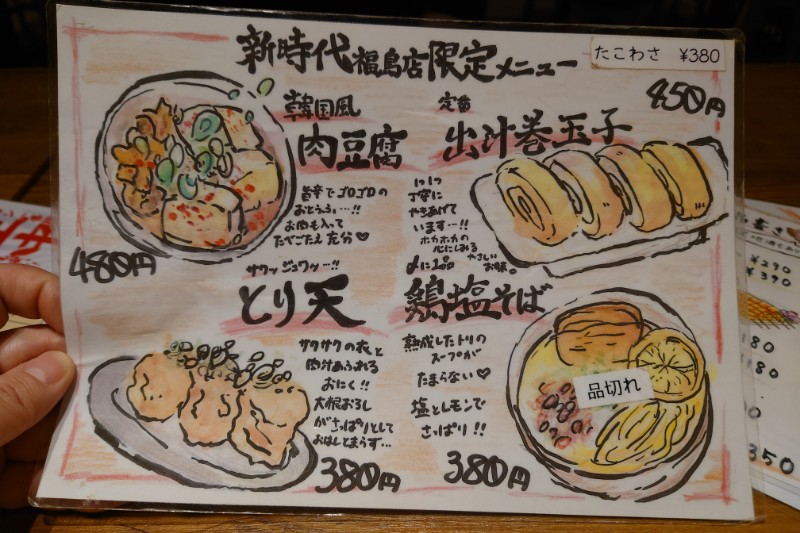 新時代 福島店限定メニュー
たこわさ ¥380
韓国風
肉豆腐
旨辛でゴロゴロの
おとうふ…!!
お肉も入って
たべごたえ充分♡
480円
定番
出汁巻玉子
450円
丁寧に
やきあげて
います…!!
ホカホカの
心にしみる
やさしい
お味。
サクッジュワッ…!!
とり天
サクサクの衣と
肉汁あふれる
おにく!!
大根おろし
がさっぱりとして
おはしとまらず…
380円
〆に1品
鶏塩そば
熟成したトリの
スープが
たまらない♡
塩とレモンで
さっぱり!!
380円
品切れ
¥290
¥390